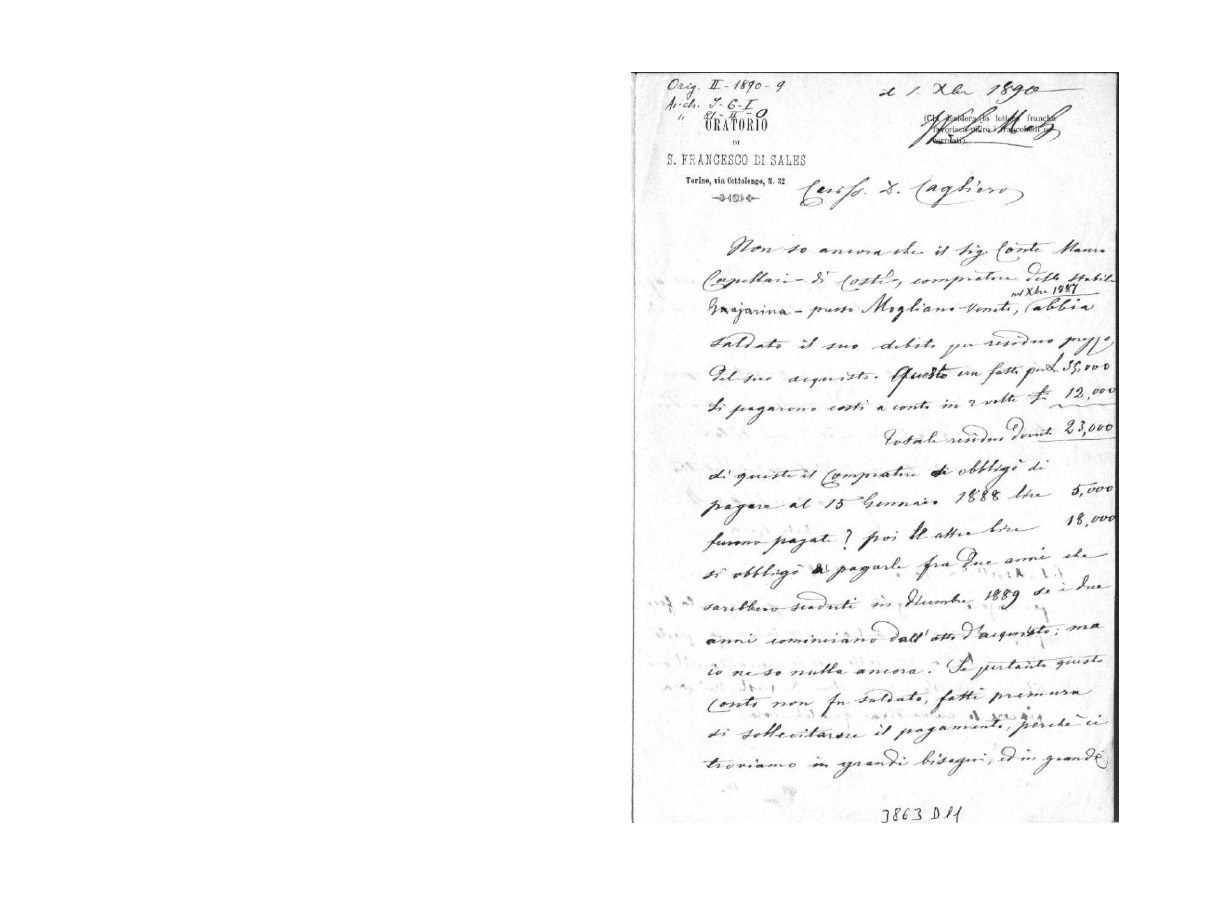 Orig. II - 1890 - 9
Arch. J - G - I
" 81 - II - O
ORATORIO
DI
S. FRANCESCO DI SALES
Torino, via Cottolengo, N. 32
1. Xbre 1890
(Chi desidera lo lettere franche
favorisca unire i francobolli
Cariss. D. Cagliero
Non so ancora che il Sig. Conte Mauro
Capellari di Costì, compratore dello stabile
presso Mogliano Veneto, nel Xbre 1887 abbia
saldato il suo debito per residuo prezzo
del suo acquisto. Questo era fatto per £ 35,000
Si pagarono costì a conto in 2 volte £ 12,000
Totale residuo dovuto 23,000
di questi il compratore si obbligò di
pagare al 15 Gennaio 1888 lire 5,000
furono pagate? poi le altre lire 18,000
si obbligò di pagarle fra due anni che
sarebbero scaduti in dicembre 1889 se i due
anni cominciano dall'atto d'acquisto; ma
io ne so nulla ancora. Se pertanto questo
conto non fu saldato, fatti premura
di sollecitarne il pagamento, perchè ci
troviamo in grandi bisogni, ed in grandi
3863 D 11